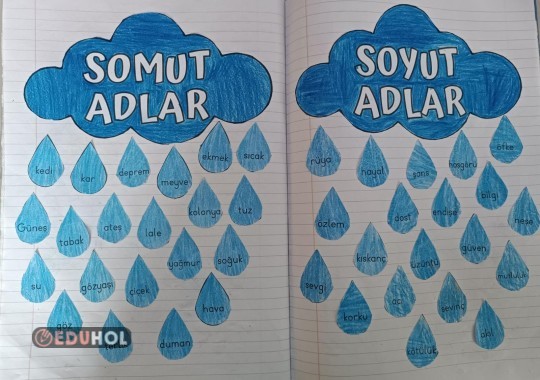 SOMUT
ADLAR
kedi
kar
deprem
meyve
ekmek
sıcak
Güneş
tabak
ateş
lale
kolonya
tuz
su
gözyaşı
çiçek
yağmur
soğuk
hava
duman
EDUHOL
SOYUT
ADLAR
rüya
hayal
şans
hoşgörü
öfke
özlem
dost
endişe
bilgi
neşe
sevgi
kıskanç
üzüntü
güven
mutluluk
korku
acı
sevinç
kötülük
akıl